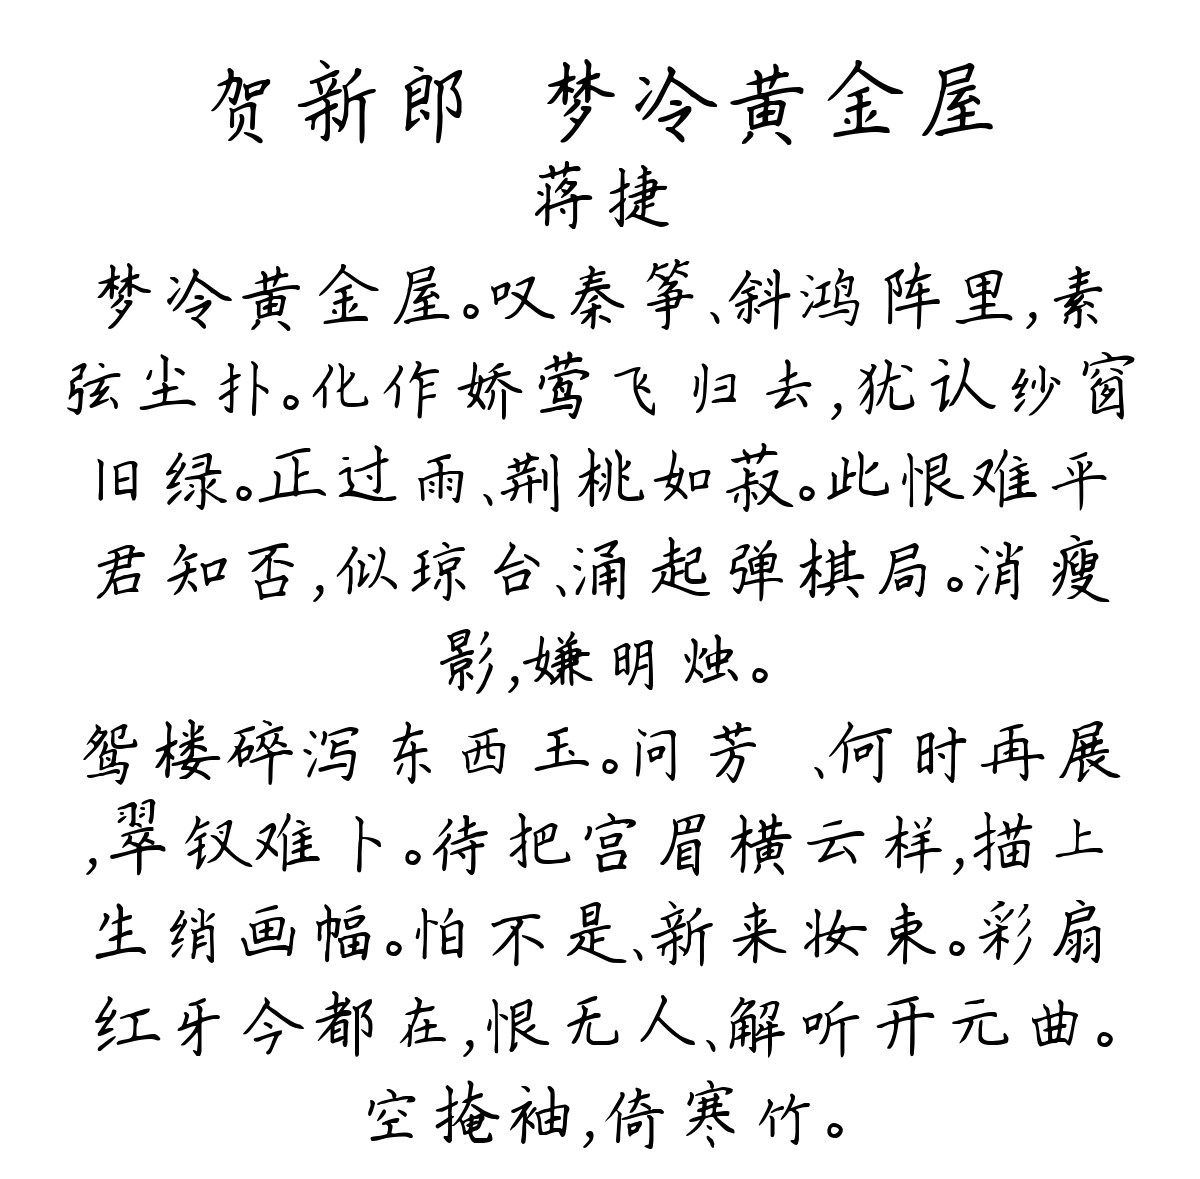 贺新郎 梦冷黄金屋
蒋捷
梦冷黄金屋。叹秦筝、斜鸿阵里,素
弦尘扑。化作娇莺飞归去,犹认纱窗
旧绿。正过雨、荆桃如菽。此恨难平
君知否,似琼台、涌起弹棋局。消瘦
影,嫌明烛。
鸳楼碎泻东西玉。问芳 、何时再展
,翠钗难卜。待把宫眉横云样,描上
生绡画幅。怕不是、新来妆束。彩扇
红牙今都在,恨无人、解听开元曲。
空掩袖,倚寒竹。